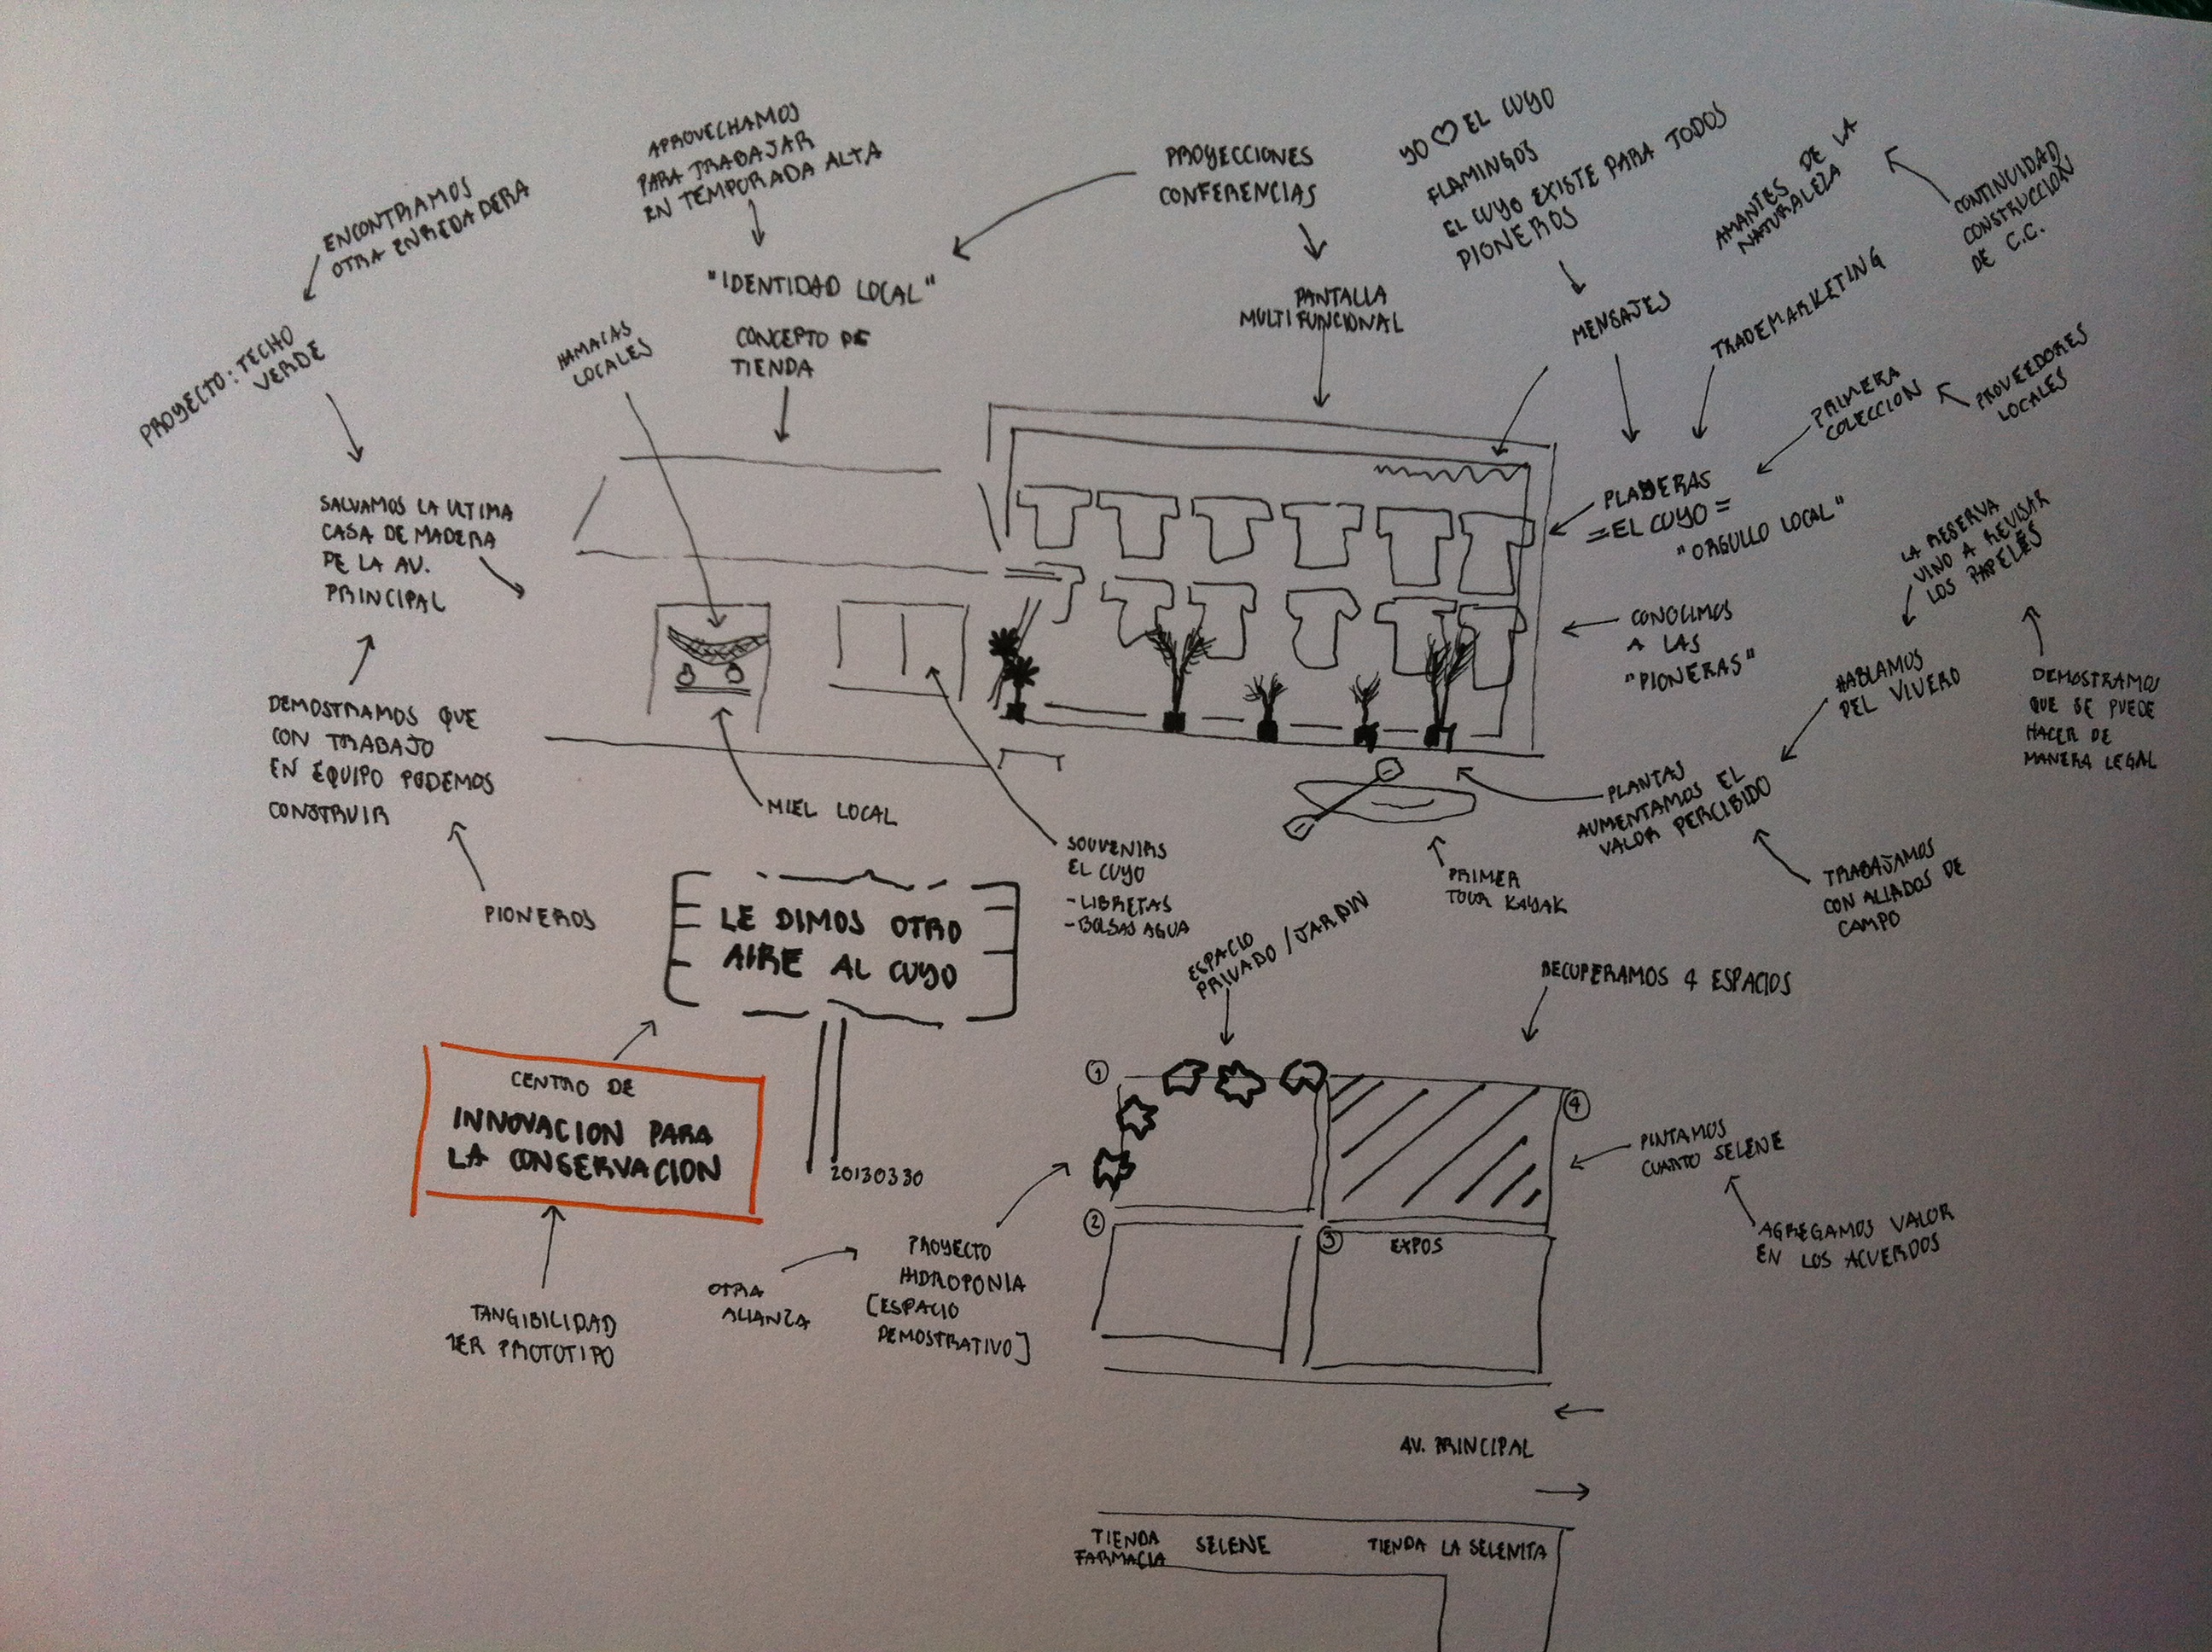 ENCONTRAMOS
OTRA ENREDADERA
PROYECTO: TECHO
VERDE
SALVAMOS LA ULTIMA
CASA DE MADERA
DE LA AV.
PRINCIPAL
DEMOSTRAMOS QUE
CON TRABAJO
EN EQUIPO PODEMOS
CONSTRUIR
PIONEROS
APROVECHAMOS
PARA TRABAJAR
EN TEMPORADA ALTA
"IDENTIDAD LOCAL"
CONCEPTO DE
TIENDA
HAMACAS
LOCALES
MIEL LOCAL
PROYECCIONES
CONFERENCIAS
PANTALLA
MULTIFUNCIONAL
YO ♡ EL CUYO
FLAMINGOS
EL CUYO EXISTE PARA TODOS
PIONEROS
MENSAJES
AMANTES DE LA
NATURALEZA
CONTINUIDAD
CONSTRUCCION
DE C.C.
TRADEMARKETING
PRIMERA
COLECCION
PROVEEDORES
LOCALES
PLAYERAS
=EL CUYO=
"ORGULLO LOCAL"
CONOCIMOS
A LAS
"PIONERAS"
LA RESERVA
VINO A REVISAR
LOS PAPELES
DEMOSTRAMOS
QUE SE PUEDE
HACER DE
MANERA LEGAL
HABLAMOS
DEL VIVERO
PLANTAS
AUMENTAMOS EL
VALOR PERCIBIDO
TRABAJAMOS
CON ALIADOS DE
CAMPO
PRIMER
TOUR KAYAK
SOUVENIRS
EL CUYO
-LIBRETAS
-BOLSAS AGUA
LE DIMOS OTRO
AIRE AL CUYO
20130330
CENTRO DE
INNOVACION PARA
LA CONSERVACION
TANGIBILIDAD
1ER PROTOTIPO
OTRA
ALIANZA
PROYECTO
HIDROPONIA
[ESPACIO
DEMOSTRATIVO]
ESPACIO
PRIVADO / JARDIN
RECUPERAMOS 4 ESPACIOS
1
4
2
3
EXPOS
PINTAMOS
CUARTO SELENE
AGREGAMOS VALOR
EN LOS ACUERDOS
AV. PRINCIPAL
TIENDA
FARMACIA
SELENE
TIENDA LA SELENITA